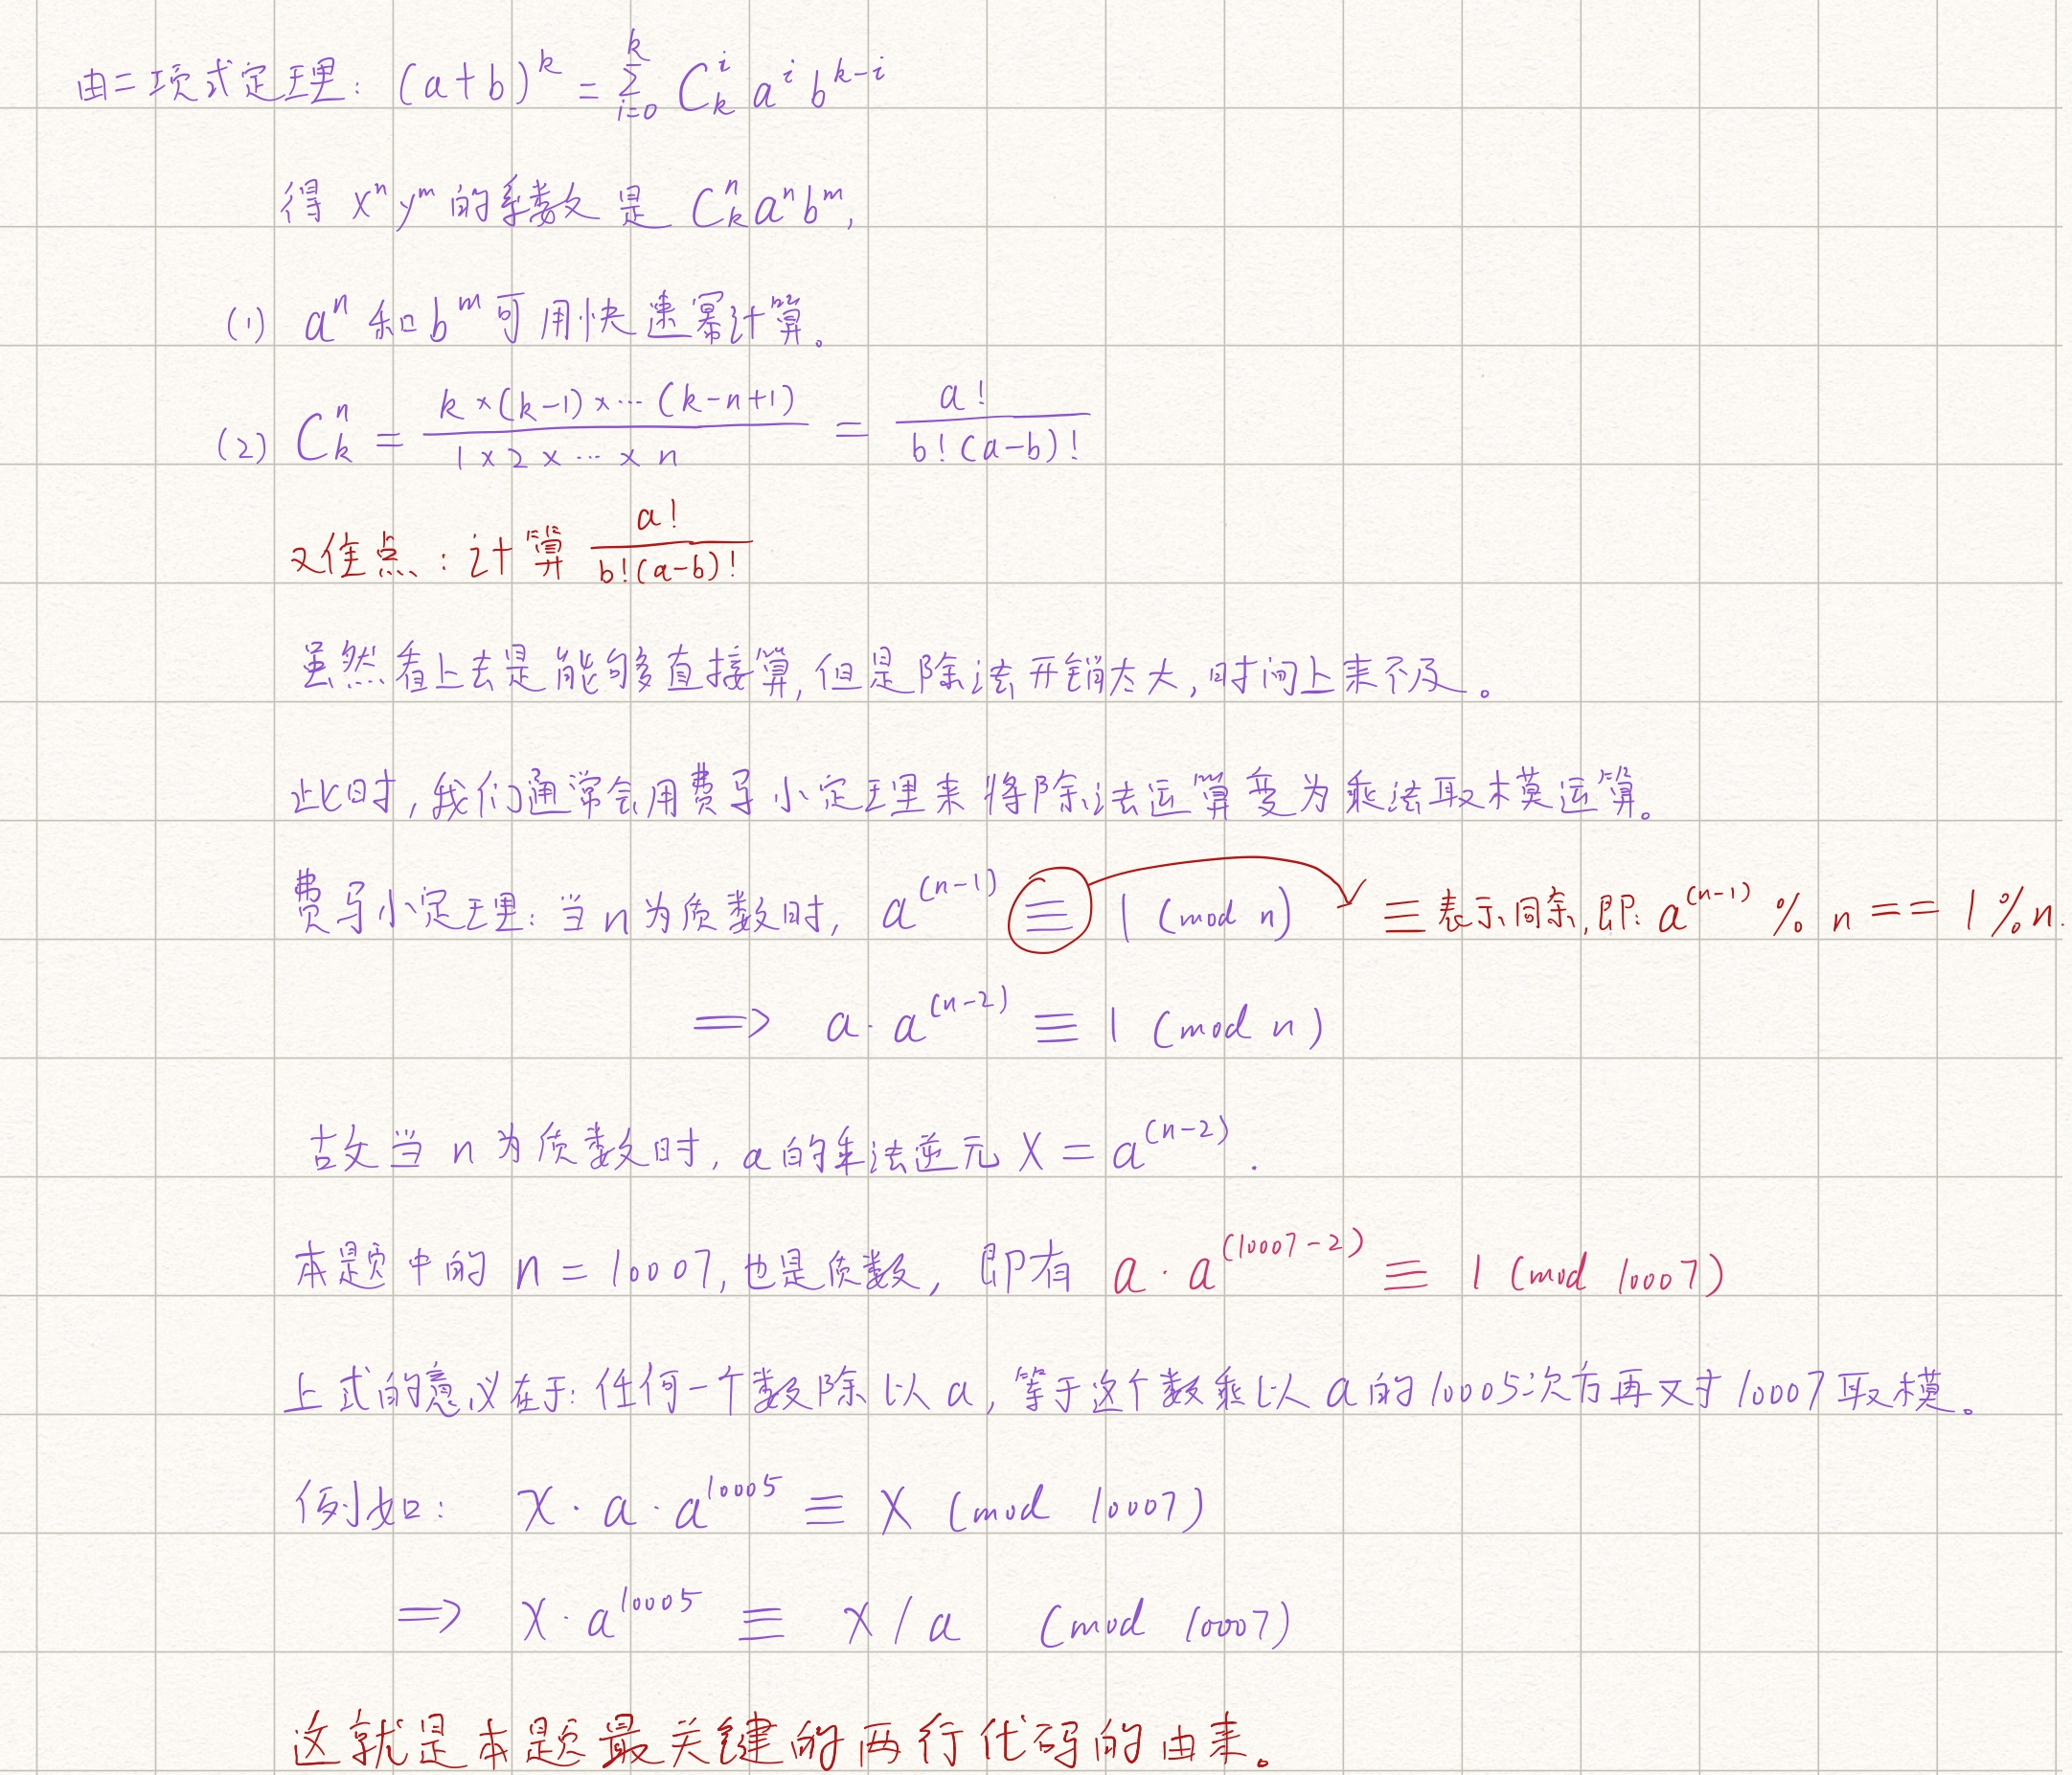 由二项式定理：(a+b)^k = ∑_{i=0}^{k} C_k^i a^i b^{k-i}
得 x^n y^m 的系数是 C_k^n a^n b^m,
(1) a^n 和 b^m 可用快速幂计算。
(2) C_k^n = \frac{k×(k-1)×…(k-n+1)}{1×2×…×n} = \frac{a!}{b!(a-b)!}
难点：计算 \frac{a!}{b!(a-b)!}
虽然看上去是能够直接算,但是除法开销太大,时间上来不及。
此时,我们通常会用费马小定理来将除法运算变为乘法取模运算。
费马小定理：当n为质数时, a^{(n-1)} ≡ 1 (mod n) ≡表示同余,即: a^{(n-1)} % n == 1 % n.
=> a·a^{(n-2)} ≡ 1 (mod n)
故当 n 为质数时, a的乘法逆元 X = a^{(n-2)}.
本题中的 n = 10007, 也是质数, 即有 a·a^{(10007-2)} ≡ 1 (mod 10007)
上式的意义在于: 任何一个数除以a, 等于这个数乘以a的10005次方再对10007取模。
例如: x·a·a^{10005} ≡ x (mod 10007)
=> x·a^{10005} ≡ x/a (mod 10007)
这就是本题最关键的两行代码的由来。